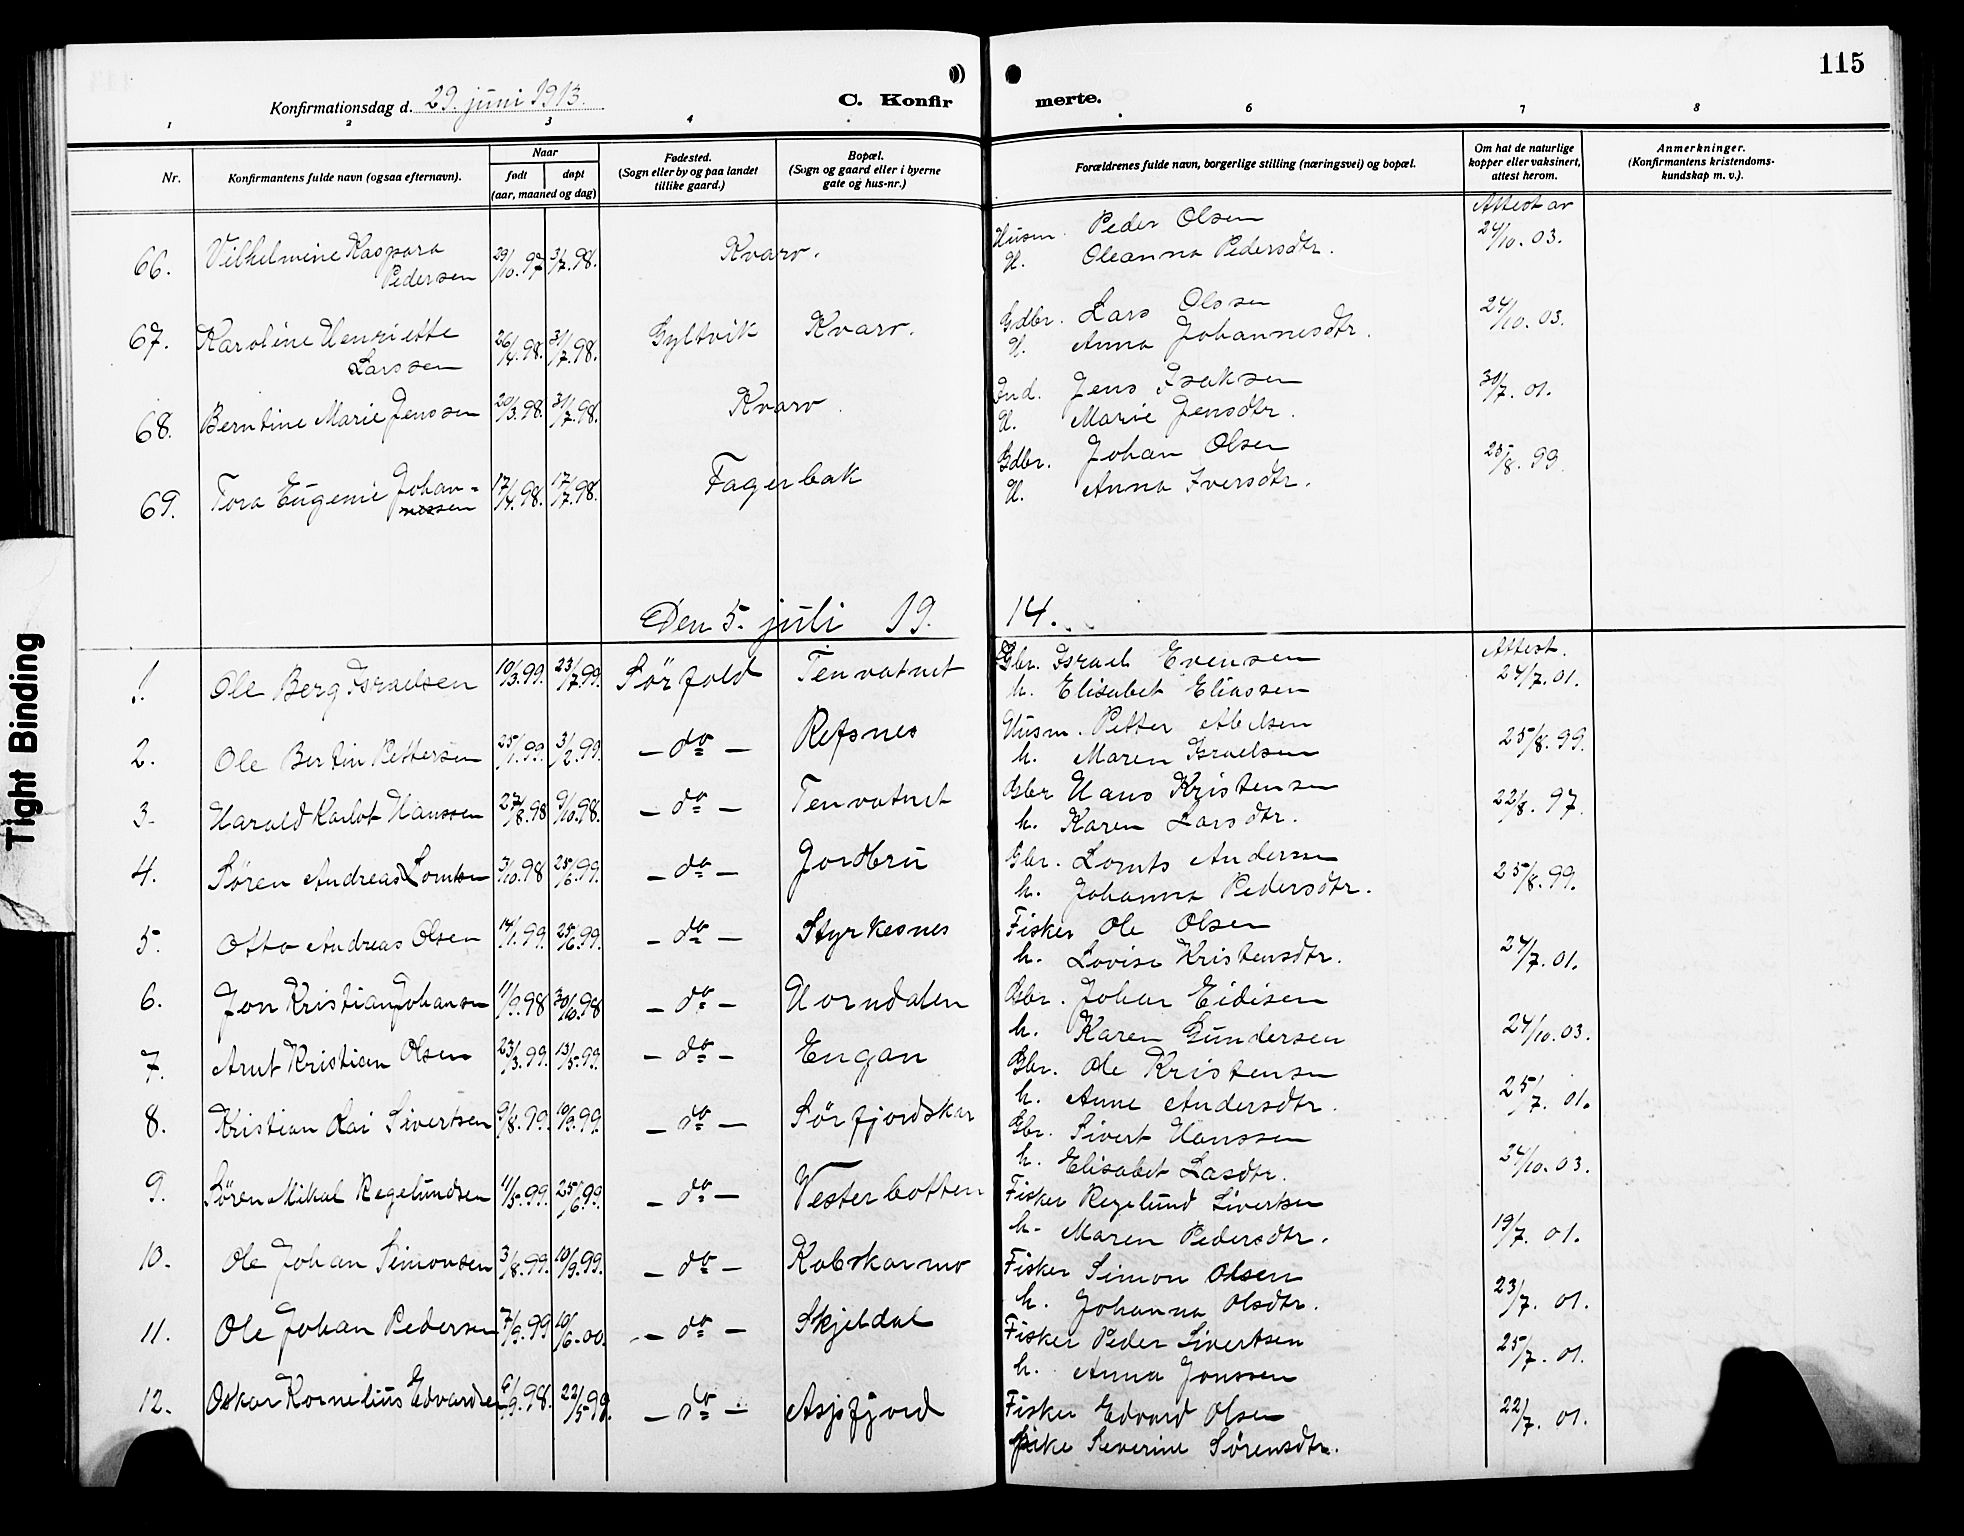 115
Konfirmationsdag d. 29. juni 1913.
C. Konfir
merte.
1 2 3 4 6 7 8
Nr.
Konfirmantens fulde navn (ogsaa efternavn).
Naar
født døpt
(aar, maaned og dag)
Fødested.
(Sogn eller by og paa landet
tillike gaard.)
Bopæl.
(Sogn og gaard eller i byerne
gate og hus-nr.)
Forældrenes fulde navn, borgerlige stilling (næringsvei) og bopæl.
Om hat de naturlige
kopper eller vaksinert,
attest herom.
Anmerkninger.
(Konfirmantens kristendoms-
kundskap m. v.).
Attest av
66. Vilhelmine Kaspara
Pedersen 29/10.97 3/7.98. Kvarv.
Husm. Peder Olsen 24/10.03.
H. Oleanna Pedersdtr.
67. Karoline Henriette
Larssen 26/4.98. 31/7.98. Gyltvik Kvarv.
Gdbr. Lars Olssen 24/10.03.
H. Anna Johannesdtr.
68. Berntine Marie Jenssen 20/3.98. 31/7.98. Kvarv.
Ind. Jens Isaksen 30/7.01.
H. Marie Jensdtr.
69. Tora Eugenie Johan-
nessen 17/4.98. 17/7.98. Fagerbak
Gdbr. Johan Olsen 25/8.99.
H. Anna Iversdtr.
Den 5. juli 19. 14.
Attest.
1. Ole Berg Israelsen 10/3.99. 23/7.99. Sörfold Tenvatnet
Gbr. Israel Evensen 24/7.01.
h. Elisabet Eliassen
2. Ole Bertin Pettersen 25/1.99. 3/2.99. - do - Refsnes
Husm. Petter Abelsen 25/8.99.
h. Maren Israelsen
3. Harald Karlot Hanssen 27/8.98 9/10.98. - do - Tenvatnet
Gbr Hans Kristensen 22/8.97.
h. Karen Larsdtr.
4. Søren Andreas Lomtsen 3/10.98 25/6.99. - do - Jordbru
Gbr. Lomts Andersen 25/8.99.
h. Johanna Pedersdtr.
5. Otto Andreas Olsen 14/1.99. 25/6.99. - do - Styrkesnes
Fisker Ole Olsen 24/7.01.
h. Lovise Kristensdtr.
6. Jon Kristian Johansen 11/9.98 30/10.98 - do - Horndalen
Gbr. Johan Eidisen
h. Karen Gundersen 24/10.03.
7. Arnt Kristian Olsen 23/3.99. 13/5.99. - do - Engan
Gbr. Ole Kristensen
h. Anne Andersdtr. 25/7.01.
8. Kristian Kai Sivertsen 9/8.99. 10/9.99. - do - Sörfjordskar
Gbr. Sivert Hanssen
h. Elisabet Lasdtr. 24/10.03.
9. Søren Mikal Regelundsen 11/5.99. 25/6.99. - do - Vesterbotten
Fisker Regelund Sivertsen
h. Maren Pedersdtr. 19/7.01.
10. Ole Johan Simonsen 3/8.99. 10/9.99. - do - Kobskarmo
Fisker Simon Olsen
h. Johanna Olsdtr. 23/7.01.
11. Ole Johan Pedersen 7/9.99 10/6.00. - do - Skjeldal
Fisker Peder Sivertsen
h. Anna Jonssen 25/7.01.
12. Oskar Kornelius Edvardsen 6/9.98. 22/5.99. - do - Asjefjord
Fisker Edvard Olsen 22/7.01.
pike Severine Sørensdtr.
Tight Binding